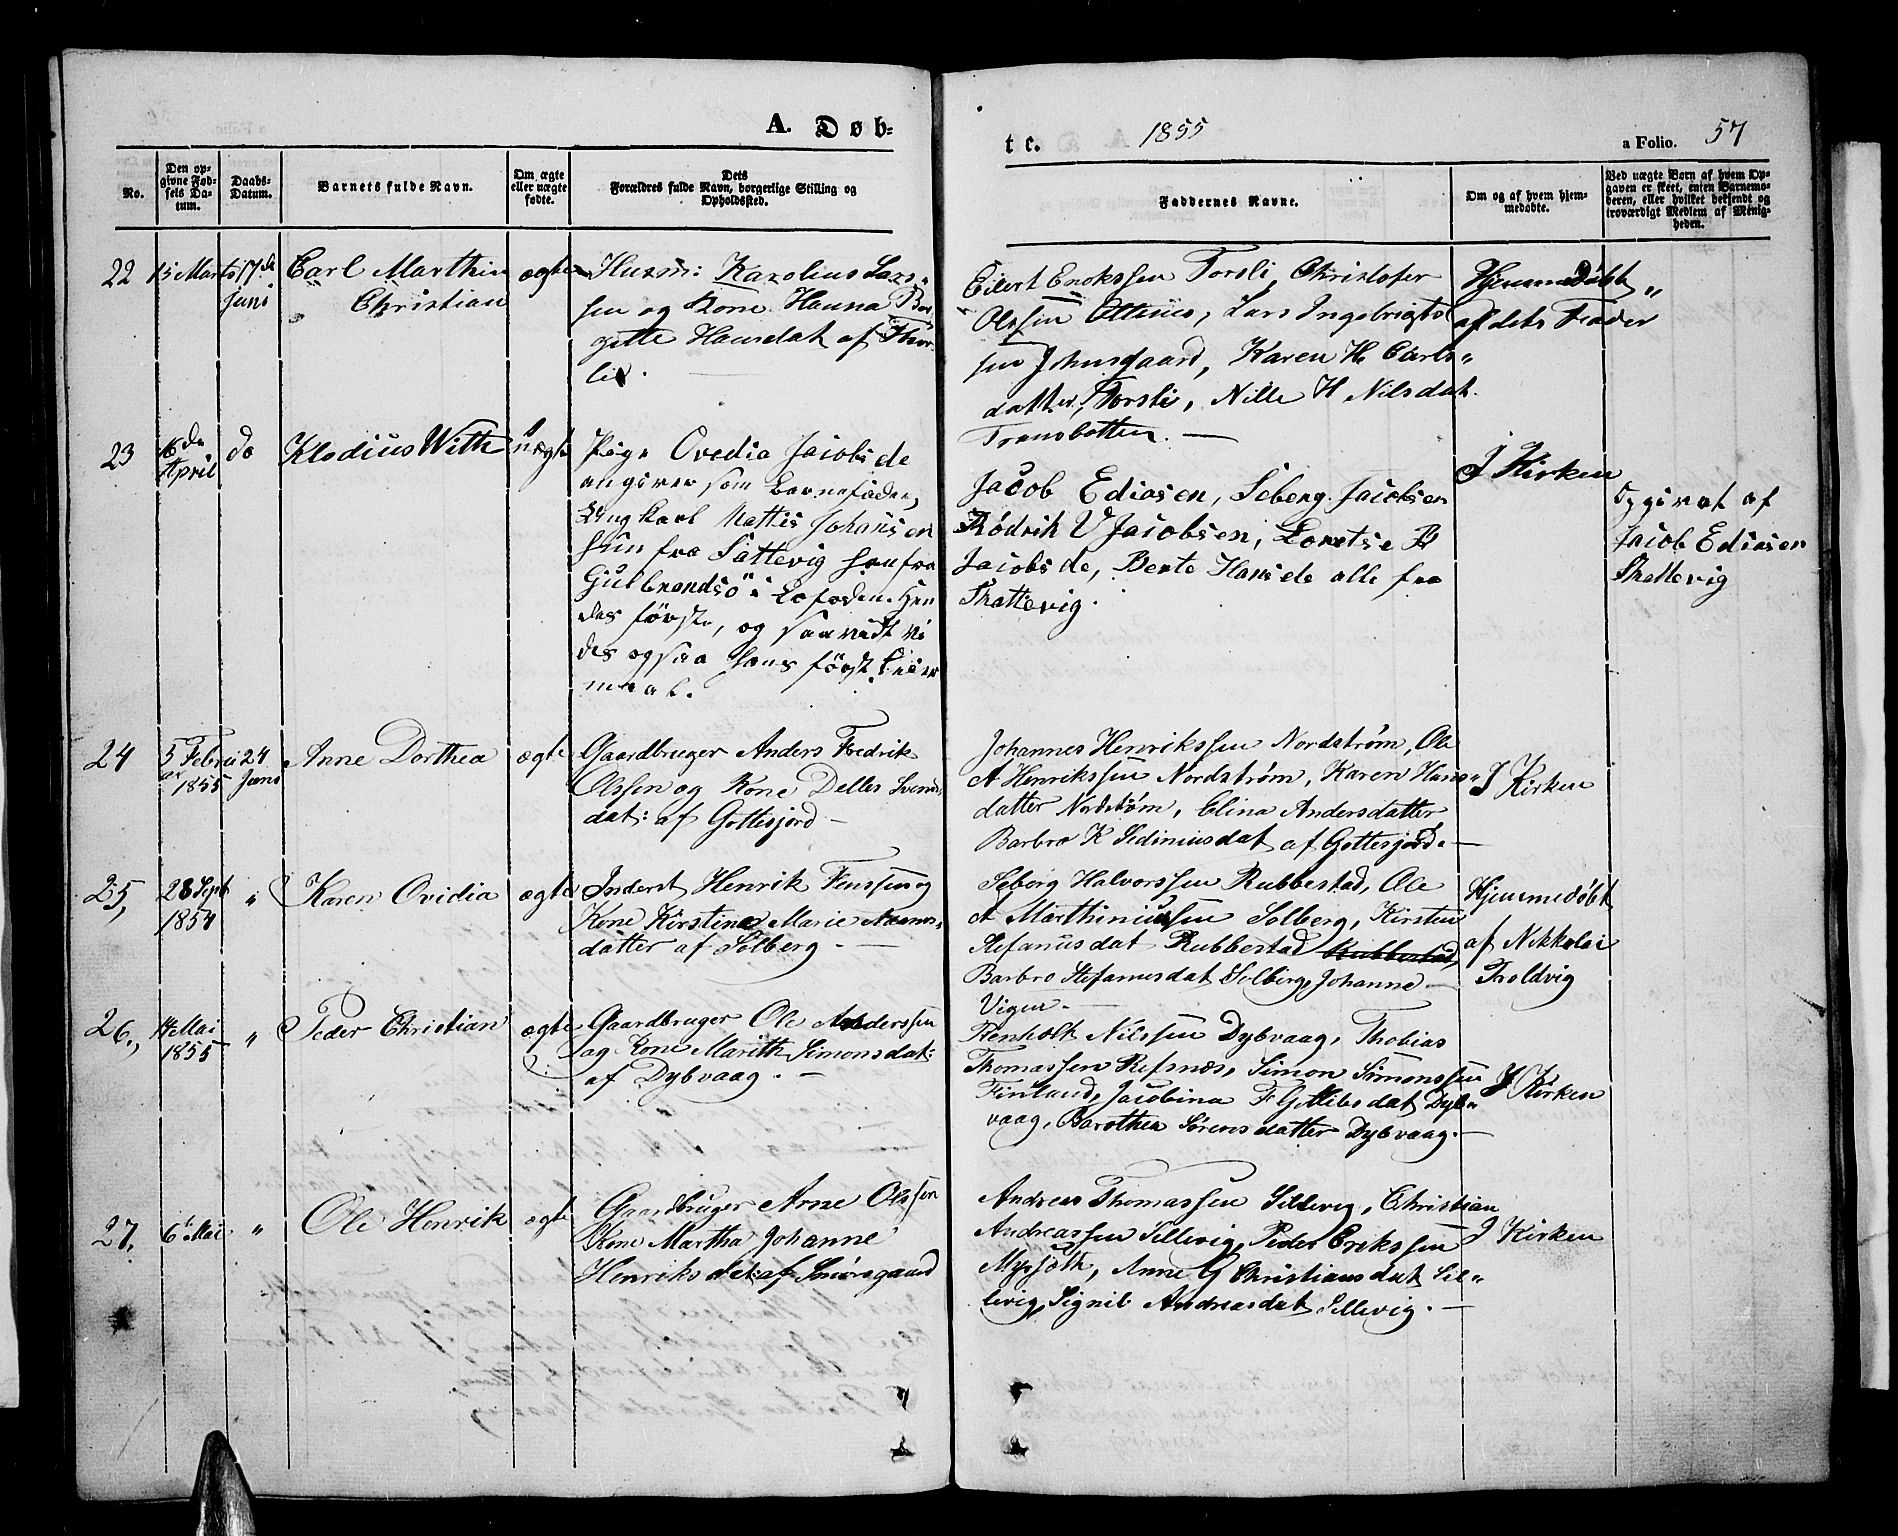 A. Døb=
te.
1855
a Folio. 57
No.
Den op-
givne Fød-
sels Da-
tum.
Daabs-
Datum.
Barnets fulde Navn.
Om ægte
eller uægte
fødte.
Dets
Forældres fulde Navn, borgerlige Stilling og
Opholdssted.
Faddernes Navne.
Om og af hvem hjem-
medøbte.
Ved uægte Børn af hvem Op-
gaven er skeet, enten Barnemo-
deren, eller hvilket bekjendt og
troværdigt Medlem af Menig-
heden.
22
15 Marts
17de
Juni
Carl Marthin
Christian
ægte
Husm: Karolius Lars-
sen og Kone Hanna Bor
gitte Hansdat af Thor
lie.
Eilert Enokssen Torsli, Christofer
Olssen Ottenes, Lars Ingebrigts
sen Johnsgaard, Karen H. Carls„
datter, Torsli, Nille H Nilsdat.
Transbotten. —
Hjemmedøbt „
af dets Fader
23
16de
April
do
Klodius With
uægte
Pige Ovedia Jacobsde
angiver som Barnefader,
Ungkarl Mattis Johansen
hun fra Sattevig han fra
Gulbrandsö i Lofoden. Hen
des første, og saavidt vi
des ogsaa hans först Leier
maal.
Jacob Ediasen, Seberg Jacobsen
Rödrik V Jacobsen, Loretse B
Jacobsde, Berte Hansde alle fra
Skattevig.
I Kirken
Opgivet af
Jacob Ediasen
Skattevig
24
5 Febru
ar 1855
24
Juni
Anne Dorthea
ægte
Gaardbruger Anders Fredrik
Olssen og Kone Delles Svens
dat: af Gottesjord —
Johannes Henrikssen Nordstrøm, Ole
A Henrikssen Nordstrøm, Karen Hans„
datter Nordstøm, Elina Andersdatter
Barbro K Sediniusdat af Gottesjord. —
I Kirken
25,
28 Sept
1854
„
Karen Ovidia
ægte
Inderst Henrik Jenssen og
Kone Kirstine Marie Adams„
datter af Solberg —
Seberg Halvorssen Rubbestad, Ole
A Marthinussen Solberg, Kirsten
Stefanusdat Rubbestad Rubbestad,
Barbro Stefanusdat Solberg, Johanne —
Vigen. —
Hjemmedøbt
af Nikkolai
Troldvig
26.,
14 Mai
1855
„
Peder Christian
ægte
Gaardbruger Ole Anderssen
og Kone Marith Simonsdat:
af Dybvaag. —
Renholt Nilssen Dybvaag, Thobias
Thomassen Refsnæs, Simon Simonssen
Finland, Jacobina F Gottlebsdat Dyb„
vaag, Barothea Sørensdatter Dybvaag. —
I Kirken
27.
6te Mai
„
Ole Henrik
ægte
Gaardbruger Arne Olssen
Kone Martha Johanne
Henriksdat: af Smørsgaard
Andreas Thomassen Sillevig, Christian
Andreassen Sillevig, Peder Erikssen
Myrsæth, Anne G Christiansdat Sil„
levig, Signil Andreasdat Sillevig. —
I Kirken